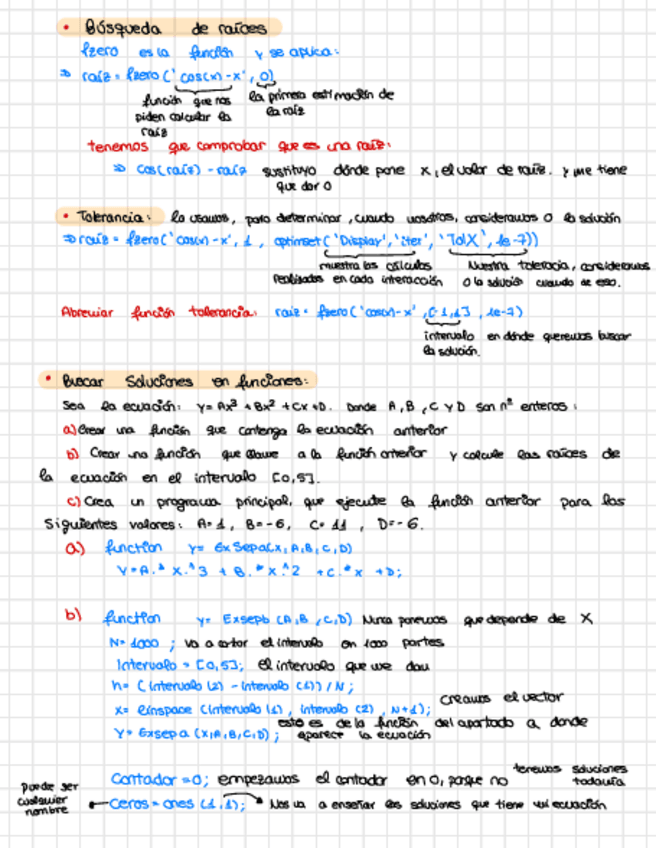 • Búsqueda de raíces
fzero es la función y se aplica:
⇒ raíz = fzero ('cos(x)-x', 0)
función que nos piden calcular la raíz
la primera estimación de la raíz
tenemos que comprobar que es una raíz:
⇒ cos(raíz) - raíz sustituyo dónde pone x, el valor de raíz. y me tiene
que dar 0
• Tolerancia: la usamos, para determinar, cuando nosotros, consideramos 0 la solución
⇒ raíz = fzero('cos(x)-x', 1, optimset('Display','iter', 'TolX', 1e-7))
muestra los cálculos realizados en cada interacción
Nuestra tolerancia, consideramos 0 la solución cuando de eso.
Abreviar función tolerancia: raíz = fzero('cos(x)-x', [-1,1], 1e-7)
intervalo en dónde queremos buscar
la solución.
• Buscar Soluciones en funciones:
Sea la ecuación: y= Ax³ + Bx² + Cx + D. Donde A, B, C y D son nº enteros:
a) Crear una función que contenga la ecuación anterior
b) Crear una función que llame a la función anterior y calcule las raíces de
la ecuación en el intervalo [0,5].
c) Crea un programa principal, que ejecute la función anterior para los
siguientes valores: A=1, B=-6, C=11, D=-6.
a) function y= ExSepa(x,A,B,C,D)
y=A.* x.^3 + B.*x.^2 +C.*x +D;
b) function y= Exsepb (A,B,C,D) Nunca ponemos que depende de X
N= 1000 ; va a cortar el intervalo en 1000 partes
Intervalo = [0,5]; el intervalo que me dan
h= (intervalo (2) - intervalo (1)) / N;
x= linspace (intervalo (1), intervalo (2), N+1); creamos el vector
y= Exsepa (x,A,B,C,D); esto es de la función del apartado a donde
aparece la ecuación
Contador =0; empezamos el contador en 0, porque no tenemos soluciones
todavía
puede ser cualquier nombre
ceros= ones (1,1); Nos va a enseñar las soluciones que tiene mi ecuación